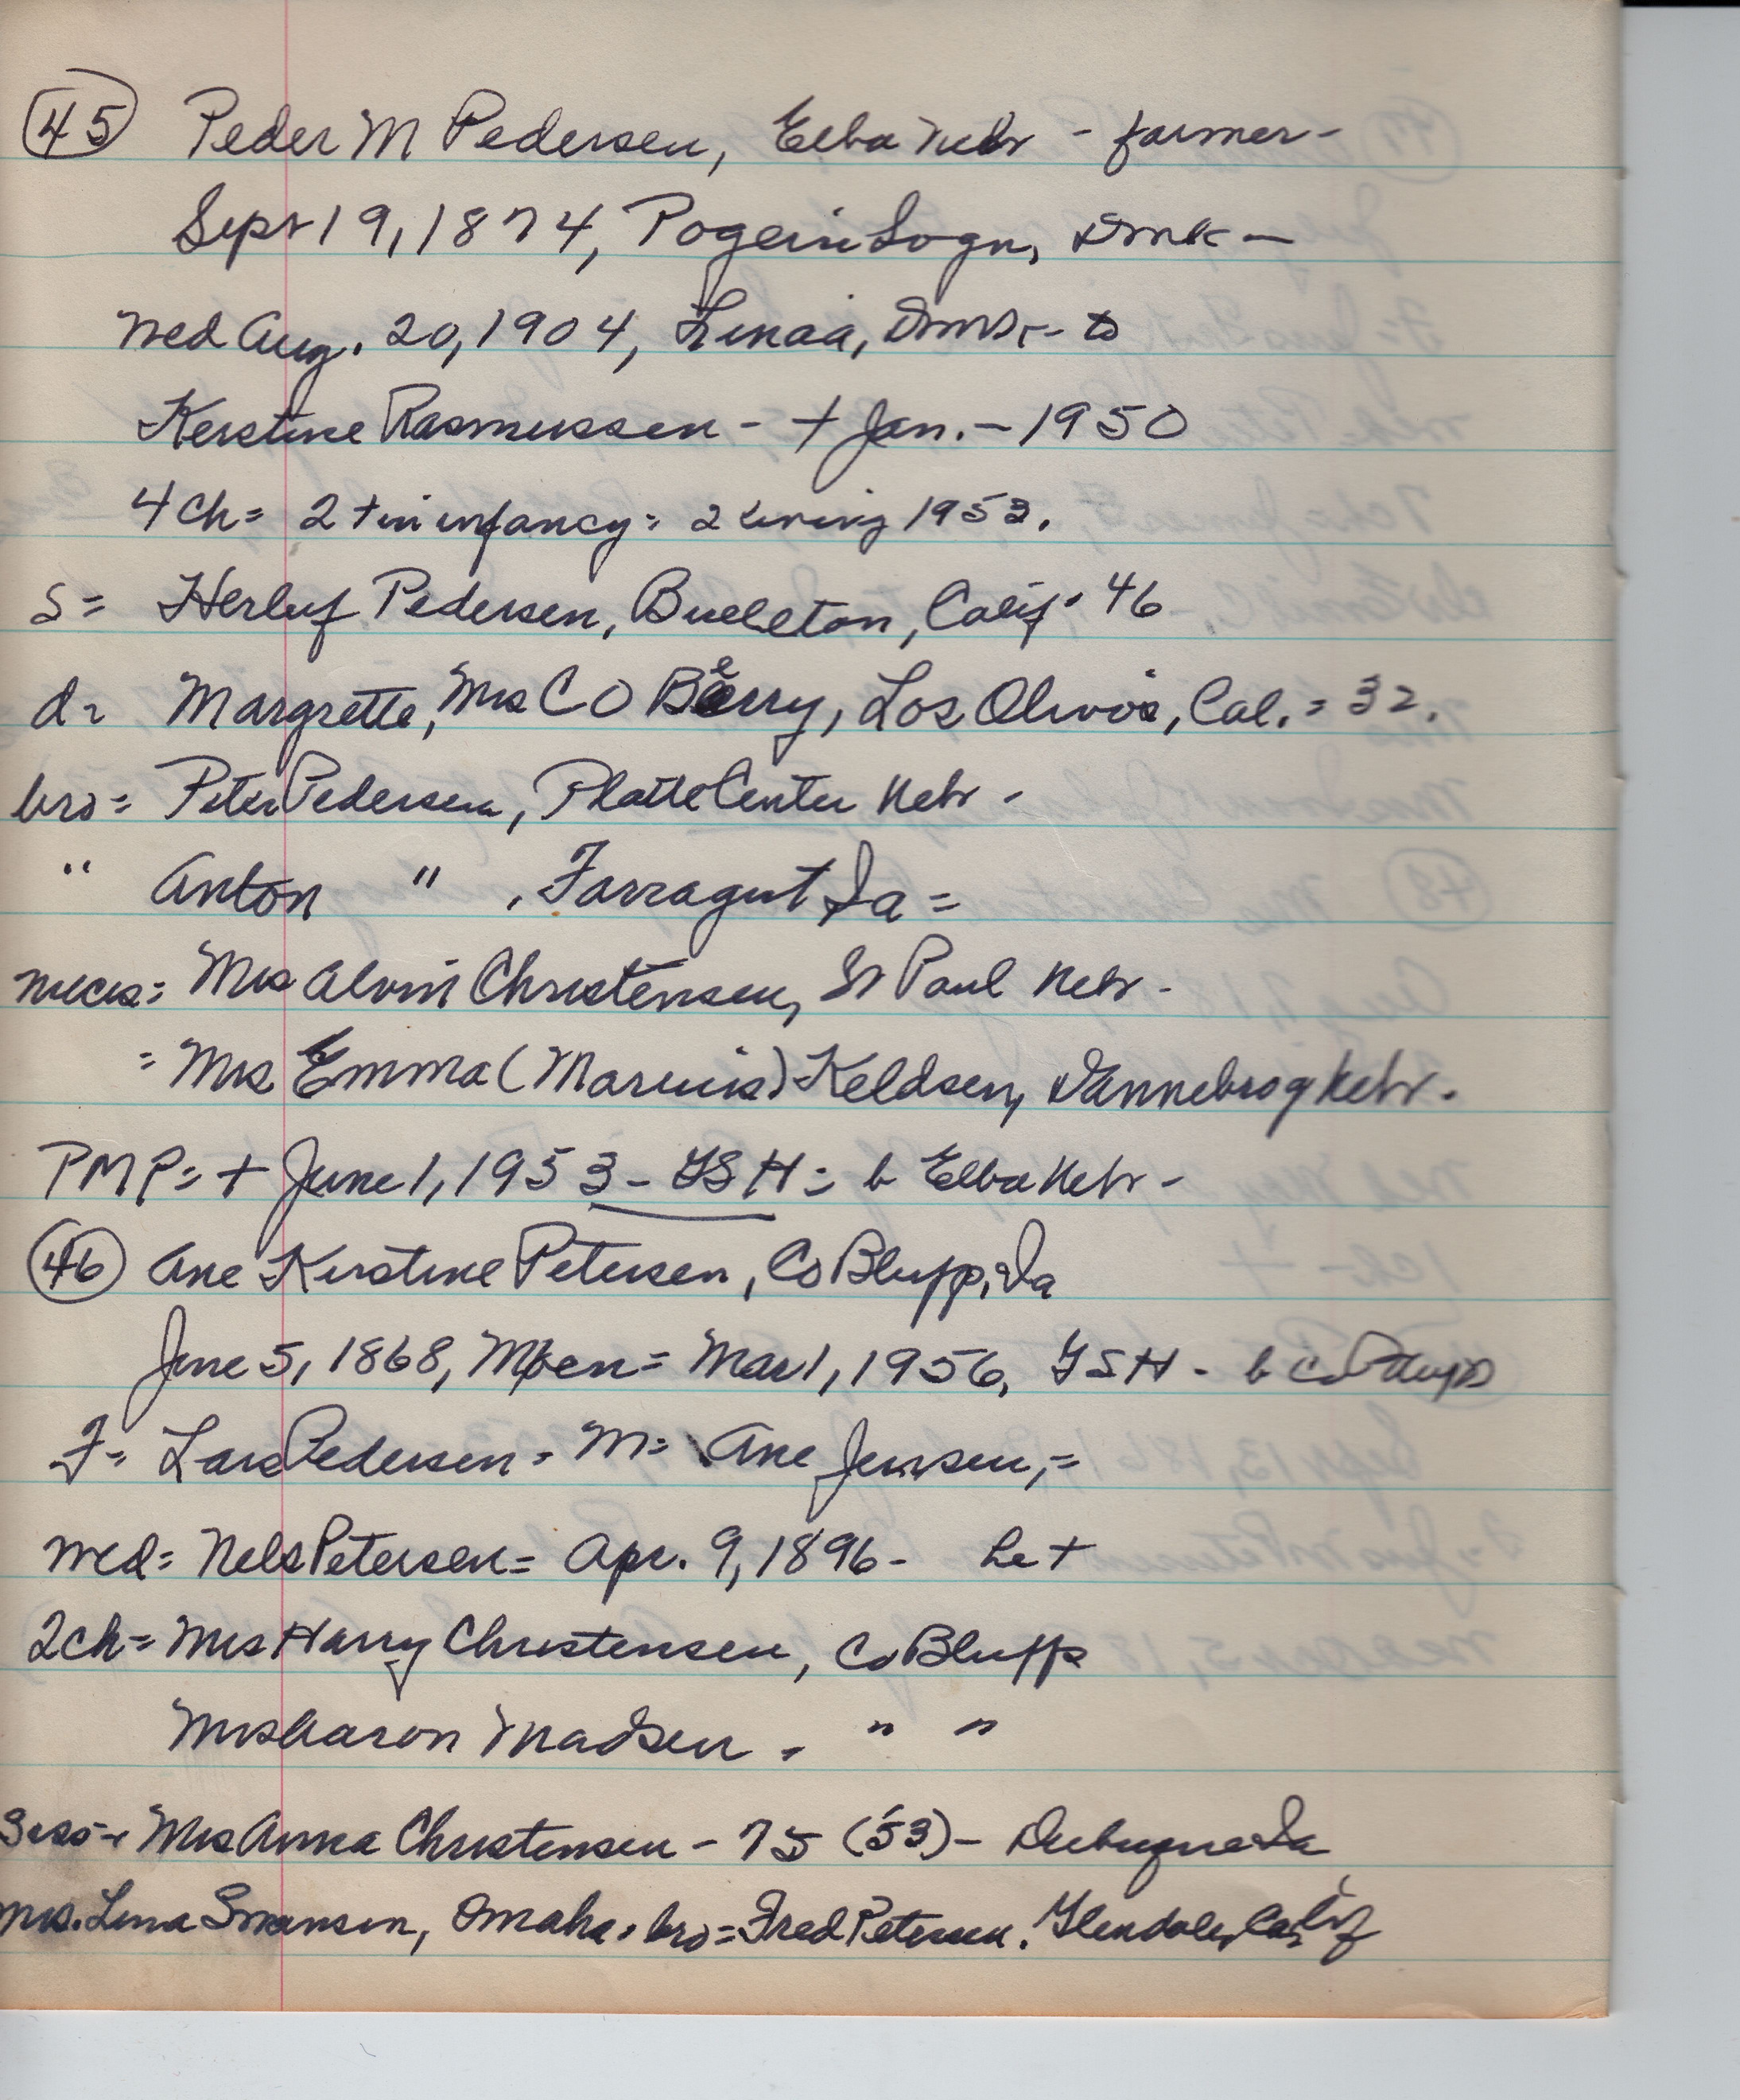 (45) Peder M Pedersen, Elba Nebr - farmer-
Sept 19, 1874, Sogn, Dmk -
Med Aug. 20, 1904, Linaa, Dmk - to
Kerstine Rasmussen - + Jan. - 1950
4 Ch = 2 + in infancy = 2 living 1953.
S = Herluf Pedersen, Buellton, Calif. 46
d = Margrette, Mrs C O Berry, Los Olivos, Cal. = 32.
bro = Peter Pedersen, Platte Center Nebr -
" Anton " , Farragut Ia =
nieces = Mrs Alvin Christensen, St Paul Nebr -
= Mrs Emma (Marius) Keldsen, Dannebrog Nebr.
PMP = + June 1, 1953 - GSH = b Elba Nebr -
(46) Ane Kirstine Petersen, Co Bluffs, Ia
June 5, 1868, Møen = Mar 1, 1956, GSH - b Co Bluffs
F = Lars Pedersen = M = Ane Jensen, =
Med = Nels Petersen = Apr. 9, 1896 - he +
2ch = Mrs Harry Christensen, Co Bluffs
Mrs Aaron Madsen - " "
Mrs Anna Christensen - 75 (53) - Dubuque Ia
Mrs. Lena Swansen, Omaha, bro = Fred Petersen. Glendale, Calif